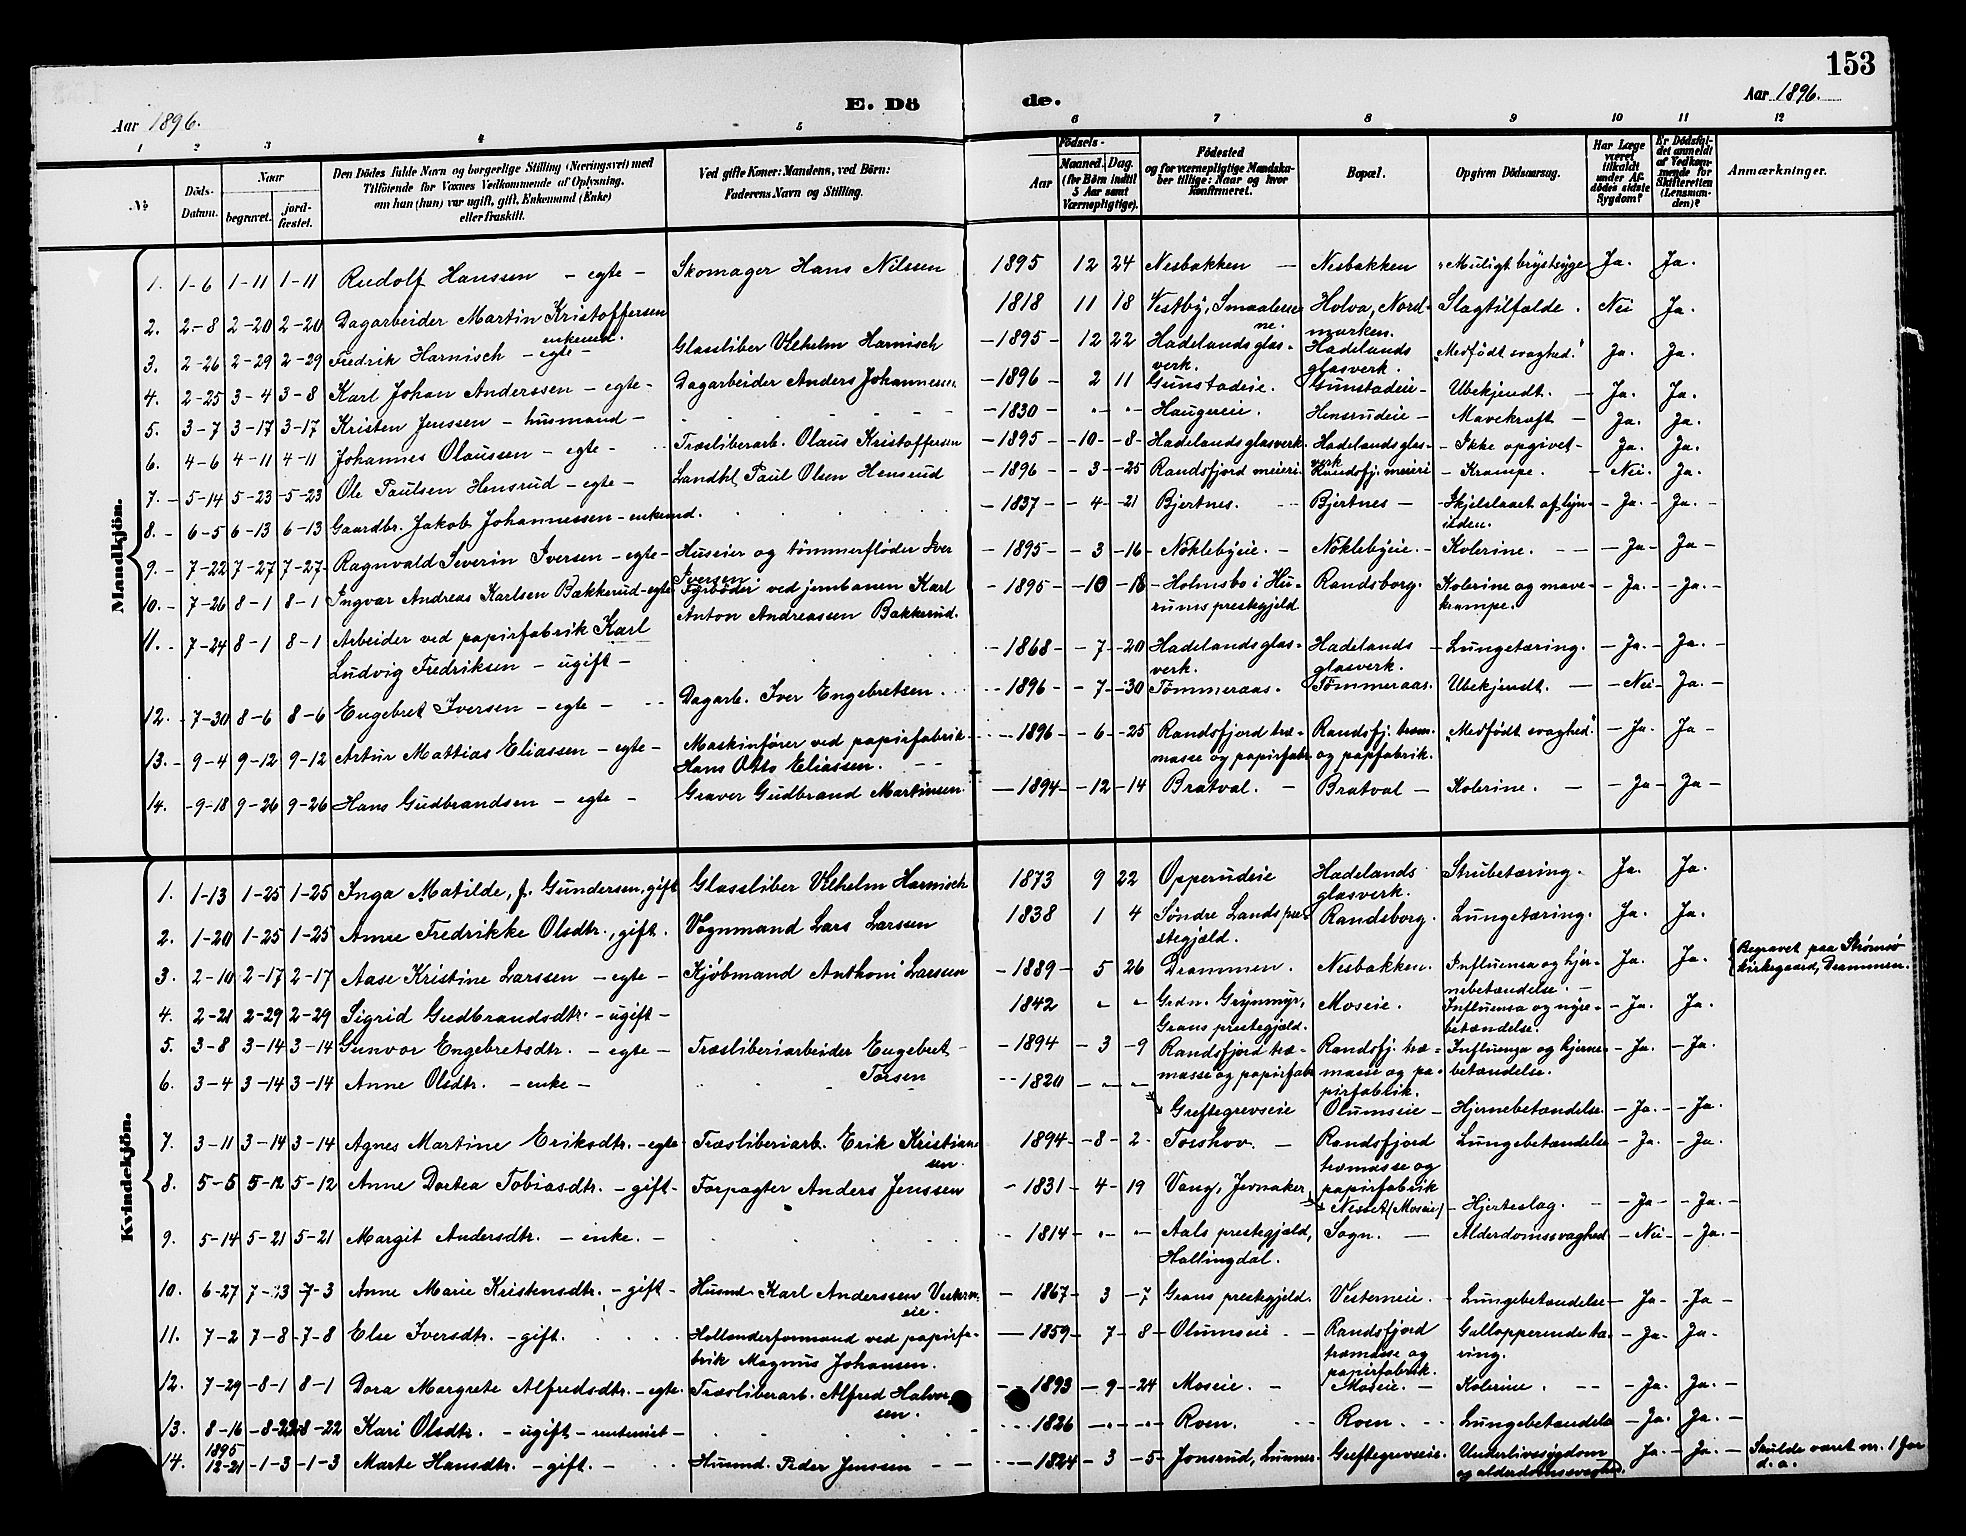 153
E. Dö de.
Aar 1896.
Aar 1896.
1 2 3 4 5 6 7 8 9 10 11 12
No
Döds-Datum.
Naar
begravet.
jord-fæstet.
Den Dödes fulde Navn og borgerlige Stilling (Næringsvei) med
Tilföiende for Voxnes Vedkommende af Oplysning,
om han (hun) var ugift, gift, Enkemand (Enke)
eller fraskilt.
Ved gifte Koner: Mandens, ved Börn:
Faderens Navn og Stilling.
Födsels-
Aar
Maaned. Dag.
(for Børn indtil
5 Aar samt
Værnepligtige).
Födested
og for værnepligtige Mandska-
ber tillige: Naar og hvor
konfirmeret.
Bopæl.
Opgiven Dödsaarsag.
Har Læge
været
tilkaldt
under Af-
dödes sidste
Sygdom?
Er Dödsfal-
det anmeldt
af Vedkom-
mende for
Skifteretten
(Lensman-
den)?
Anmærkninger.
Mandkjön.
1. 1-6 1-11 1-11 Rudolf Hanssen - egte - Skomager Hans Nilssen 1895 12 24 Nesbakken - Nesbakken "Muligt brystsyge Ja. Ja.
2. 2-8 2-20 2-20 Dagarbeider Martin Kristoffersen 1818 11 18 Vestby, Smaalene Holva, Nord- Slagtilfælde. Nei Ja.
enkemd. ne. marken.
3. 2-26 2-29 2-29 Fredrik Harnisch - egte - Glassliber Vilhelm Harnisch -1895- 12 22 Hadelandsglas- Hadelands "Medfødt svaghed." Ja. Ja.
verk. glasverk.
4. 2-25 3-4 3-8 Karl Johan Anderssen - egte - Dagarbeider Anders Johannessen -1896- 2 11 Gunstadeie. Gunstadeie - Ubekjendt. - Ja. Ja.
5. 3-7 3-17 3-17 Kristen Jenssen - husmand - -1830- Haugereie. Hensrudeie - Mavekræft - Ja. Ja.
6. 4-6 4-11 4-11 Johannes Olaussen - egte - Træsliberarb. Olaus Kristoffersen -1895- 10 -8- Hadelandsglasverk. Hadelandsglas- - Ikke opgivet - Ja. Ja.
verk
7. - 5-14 5-23 5-23 Ole Paulsen Hensrud - egte - Landhl. Paul Olsen Hensrud -1896 -3- -25 Randsfjord meieri Randsfj. meieri - Krampe. - Nei. Ja.
8. - 6-5 6-13 6-13 Gaardbr. Jakob Johannessen - enkemd. -1837- -4- -21 Bjertnes. - Bjertnes - -Ihjelslaaet af lyn- - Ja - - Ja. -
ilden.
9. - 7-22 7-27 7-27 Ragnvald Severin Iversen - egte - Huseier og tømmerfløder Iver -1895- -3 -16 Nøklebyeie. - Nøklebyeie. - Kolerine. - - - Ja - - Ja -
Iversen.
10. - 7-26 8-1 8-1 Ingvar Andreas Karlsen Bækkerud - egte Fyrbøder ved jernbanen Karl -1895- -10 -18 - Holmsbo i Hu- Randsborg. Kolerine og mave- - Ja - - Ja. -
Anton Andreassen Bakkerud. rums prestegjeld krampe.
11. - 7-24 8-1 8-1 Arbeider ved papirfabrik Karl -1868- -7 -20 Hadelandsglas- Hadelands - Lungetæring. - Ja - - Ja. -
Ludvig Fredriksen - ugift - verk. glasverk.
12. - 7-30 8-6 8-6 Engebret Iversen - egte - Dagarb. Iver Engebretsen. -1896- -7- -30 Tømmeraas. Tømmeraas. Ubekjendt. - - Nei - Ja. -
13. - 9-4 9-12 9-12 Artur Mattias Eliassen - egte - Maskinfører ved papirfabrik -1896- -6- -25 Randsfjord træ- Randsfj. træm. "Medfødt svaghed." - Ja. - Ja -
Hans Otto Eliassen. masse og papirfabr. og papfabrik.
14. - 9-18 9-26 9-26 Hans Gudbrandsen - egte - Graver Gudbrand Martinsen -1894- -12 -14 Bratval. - Bratval - Kolerine. - - Ja - Ja -
Kvindekjön.
1. 1-13 1-25 1-25 Inga Matilde, f. Gundersen, gift Glassliber Vilhelm Harnisch 1873 9 22 Opperudeie Hadelands Strubetæring. Ja. Ja.
glasverk.
2. 1-20 1-25 1-25 Anne Fredrikke Olsdtr., gift. Vognmand Lars Larssen 1838 1 4 Søndre Lands pre- Randsborg. Lungetæring. Ja. Ja.
stegjæld.
3. 2-10 2-17 2-17 Aase Kristine Larssen - egte - Kjøbmand Anthoni Larssen -1889- 5 26 Drammen. Nesbakken. Influensa og hjer- Ja. Ja. Begravet paa Strømsø
nebetændelse. - kirkegaard, Drammen.
4. 2-21 2-29 2-29 Sigrid Gudbrandsdtr. - ugift - 1842 Grdn. Grynmyr, Moseie. Influensa og nyre- - Ja. Ja.
Grans prestegjæld. betændelse.
5. 3-8 3-14 3-14 Gunvor Engebretsdtr. - egte - Træsliberiarbeider Engebret -1894 -3 -9 Randsfjord træ- Randsfj. træ- - Influenza og hjerne- - Ja. - Ja.
Torsen masse og papirfabr. masse og pa- betændelse.
pirfabrik.
6. 3-4 3-14 3-14 Anne Olsdtr. - enke - -1820 Greftegrevseie Olumseie - Hjernebetændelse. - Ja. - - Ja.
7. 3-11 3-14 3-14 Agnes Martine Eriksdtr. - egte Træsliberiarb. Erik Kristian- 1894- -8- 2 Toshov. - Randsfjord Lungebetændelse - Ja. - Ja.
sen. træmasse og
papirfabrik
8. 5-5 5-12 5-12 Anne Dortea Tobiasdtr. - gift - Forpagter Anders Jenssen -1831 -4 -19 Vang, Jevnaker Nesset (Moseie) - Hjerteslag. - Ja - - Ja. -
9. 5-14 5-21 5-21 Margit Andersdtr. - enke. - -1814- Aals prestegjæld, Sogn. - Alderdomssvaghed - Nei - - Ja. -
Hallingdal.
10. 6-27 7-3 7-3 Anne Marie Kristensdtr. - gift - Husmd. Karl Anderssen Vestern- - 1867- 3 -7 Grans prestegjeld. Vesterneie. - Lungebetændelse - Ja - - Ja -
eie.
11. 7-2 7-8 7-8 Else Iversdtr. - gift. Hollænderformand ved papirfa- -1859- 7 -8 - Olumseie - Randsfjord Gallopperende tæ- - Ja - Ja -
brik Magnus Johansen. træmasse og ring.
papirfabrik.
12. 7-29 -8-1 8-1 Dora Margrete Alfredsdtr. - egte. Træsliberarb. Alfred Halvor- -1893 -9- -24 Moseie. - Moseie. - Kolerine. - - - Ja. - Ja. -
sen.
13. 8-16 -8-22 -8-22 Kari Olsdtr. - ugift - 1826 Roen. Roen. Lungebetændelse - Ja. Ja. -
1895
14. 12-21 -1-3 -1-3 Marte Hansdtr. - gift. - Husmd. Peder Jenssen - - 1824 -3 -5- Jonsrud, Lunner. Greftegrevseie. Underlivssygdom Ja - - Ja. - Skulde været nr. 1 for
og alderdomssvaghed. d. a.